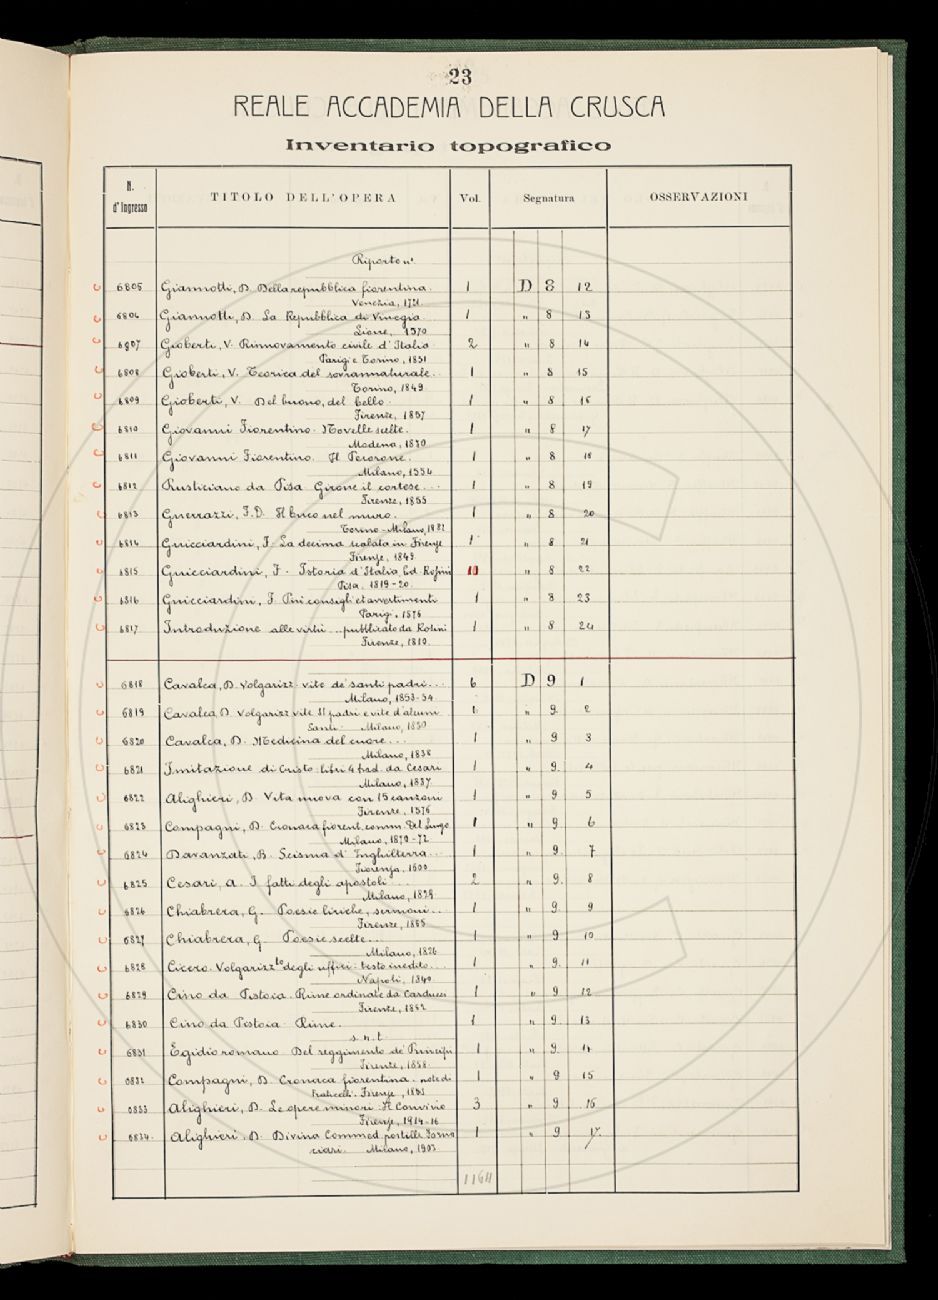 23
REALE ACCADEMIA DELLA CRUSCA
Inventario topografico
N. d'Ingresso TITOLO DELL'OPERA Vol. Segnatura OSSERVAZIONI
Riporto n.
6805 Giannotti, D. Della repubblica fiorentina. 1 D 8 12
Venezia, 1721
6806 Giannotti, D. La Repubblica di Vinegia 1 " 8 13
Lione, 1570
6807 Gioberti, V. Rinnovamento civile d'Italia 2 " 8 14
Parigi e Torino, 1851
6808 Gioberti, V. Teorica del sovrannaturale.. 1 " 8 15
Torino, 1849
6809 Gioberti, V. Del buono, del bello. 1 " 8 16
Firenze, 1857
6810 Giovanni Fiorentino. Novelle scelte. 1 " 8 17
Modena, 1830
6811 Giovanni Fiorentino. Il Pecorone. 1 " 8 18
Milano, 1554
6812 Rusticiano da Pisa Girone il cortese... 1 " 8 19
Firenze, 1855
6813 Guerrazzi, F.D. Il buco nel muro. 1 " 8 20
Torino-Milano, 1882
6814 Guicciardini, F. La decima scalata in Firenze 1 " 8 21
Firenze, 1849
6815 Guicciardini, F. Istoria d'Italia, Ed. Rosini 10 " 8 22
Pisa, 1819-20.
6816 Guicciardini, F. Più consigli et avvertimenti 1 " 8 23
Parigi, 1576
6817 Introduzione alle virtù... pubblicato da Rosini 1 " 8 24
Firenze, 1810.
6818 Cavalca, D. Volgarizz. vite de' santi padri... 6 D 9 1
Milano, 1853-54
6819 Cavalca D. Volgarizz vite SS padri e vite d'alcuni " 9 2
Santi. Milano, 1830
6820 Cavalca, D. Medicina del cuore... 1 " 9 3
Milano, 1838
6821 Imitazione di Cristo. libri 4 trad. da Cesari 1 " 9 4
Milano, 1837
6822 Alighieri, D. Vita nuova con 15 canzoni 1 " 9 5
Firenze, 1576
6823 Compagni, D. Cronaca fiorent. comm. Del Lungo 1 " 9 6
Milano, 1870-72
6824 Davanzati, B. Scisma d'Inghilterra... 1 " 9 7
Fiorenza, 1600
6825 Cesari, A. I fatti degli apostoli... 2 " 9 8
Milano, 1829
6826 Chiabrera, G. Poesie liriche, sermoni.. 1 " 9 9
Firenze, 1865
6827 Chiabrera, G. Poesie scelte... 1 " 9 10
Milano, 1826
6828 Cicero. Volgarizz.to degli uffici: testo inedito... 1 " 9 11
Napoli, 1840
6829 Cino da Pistoia. Rime ordinate da Carducci 1 " 9 12
Firenze, 1862
6830 Cino da Pistoia. Rime. 1 " 9 13
s.n.t.
6831 Egidio romano Del reggimento de' Principi 1 " 9 14
Firenze, 1858
6832 Compagni, D. Cronaca fiorentina. note di 1 " 9 15
Fraticelli. Firenze, 1855
6833 Alighieri, D. Le opere minori. Il Convivio 3 " 9 16
Firenze, 1914-16
6834 Alighieri. D. Divina Commed. postille Forna 1 " 9 17
ciari. Milano, 1903
1164